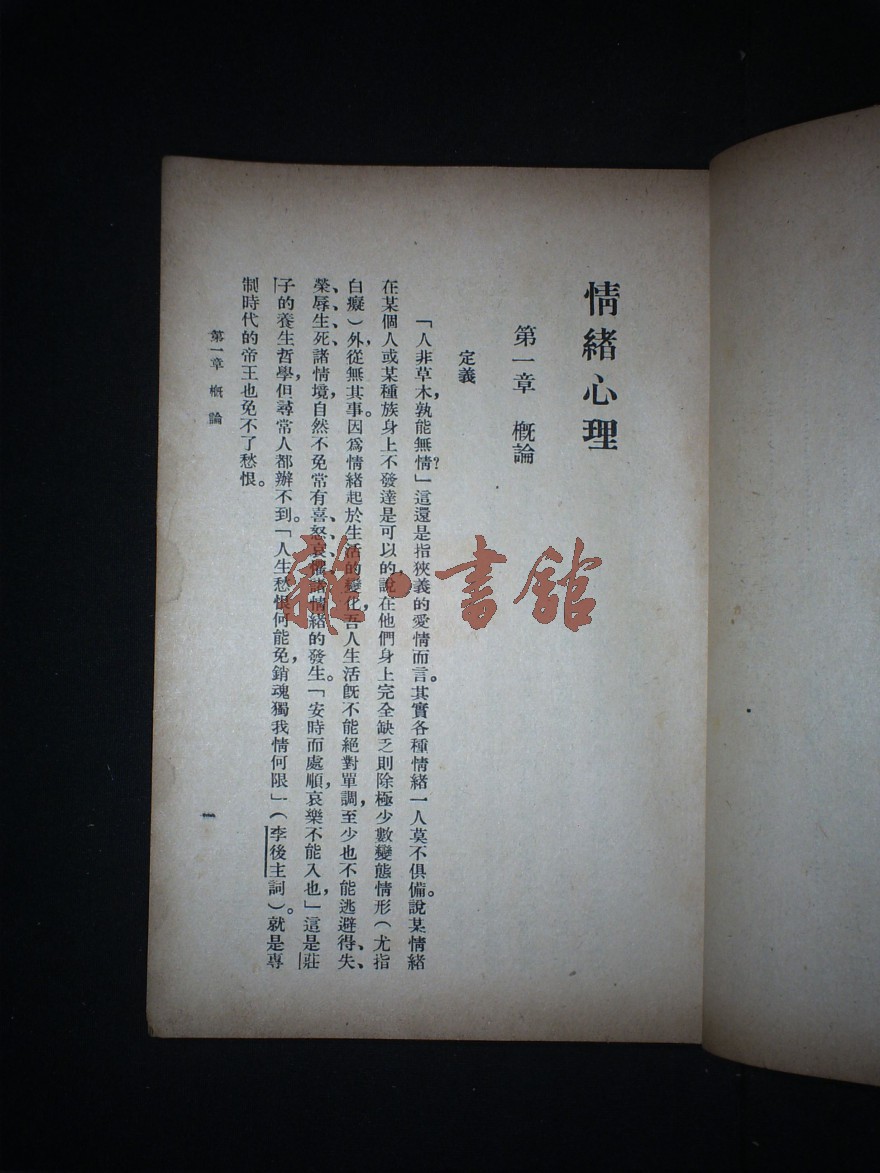 情緒心理
第一章 概論
定義
「人非草木，孰能無情？」這還是指狹義的愛情而言。其實各種情緒一人莫不俱備。說某情緒
在某個人或某種族身上不發達是可以的，說在他們身上完全缺乏則除極少數變態情形（尤指
白癡）外，從無其事。因爲情緒起於生活的變化，吾人生活既不能絕對單調，至少也不能逃避得、失、
榮、辱、生、死、諸情境，自然不免常有喜、怒、哀、懼、諸情緒的發生。「安時而處順，哀樂不能入也，」這是莊
子的養生哲學，但尋常人都辦不到。「人生愁恨何能免，銷魂獨我情何限」（李後主詞）。就是專
制時代的帝王也免不了愁恨。
第一章 概論
一
雜·書館